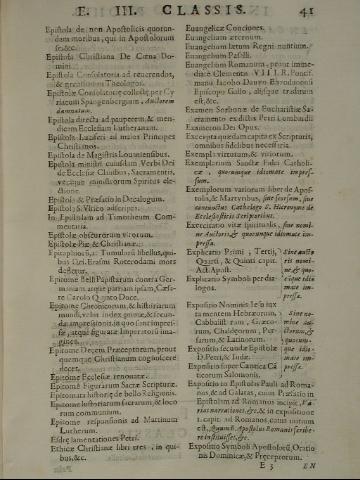 E. III. CLASSIS. 41
Epistola de non Apostolicis quorun-
dam moribus, qui in Apostolorum
se, &c.
Epistola Christiana De Cœna Do-
mini.
Epistola Consolatoria ad reuerendos,
& præstantes Theologos.
Epistolæ Consolatoriæ collectæ, per Cy
riacum Spangenbergium, Auctorem
damnatum.
Epistola directa ad pauperem, & men-
dicem Ecclesiam lutheranam.
Epistola Lutheri ad maios Principes
Christianos.
Epistola de Magistris Louaniensibus.
Epistola ministri cuiusdam Verbi Dei
de Ecclesiæ Clauibus, Sacramentis,
verique ministrorum Spiritus ele-
ctione.
Epistola & Præfatio in Decalogum.
Epistola S. Vlrico adscripta.
In Epistolam ad Timotheum Com-
mentaria.
Epistolæ obscurorum virorum.
Epistolæ Piæ & Christianæ.
Epitaphion, a Tumulus libellus, qui-
bus Des. Erasmi Roterodami mors
defletur.
Epitome Belli Papistarum contra Ger-
maniam atque patriam ipsam, Cæsa-
re Carolo Quinto Duce.
Epitome Chronicorum, & historiarum
mundi, velut index primæ, & secun-
dæ impressionis, in quo sunt impres-
sæ, atque figuratæ Imperatorum ima-
gines.
Epitome Decem Præceptorum, prout
quemque Christianum cognoscere
decet.
Epitome Ecclesiæ renouatæ.
Epitome Figurarum Sacræ Scripturæ.
Epitomata historiæ de bello Religionis.
Epitome historiarum sacrarum, & loco
rum communium.
Epitome responsionum ad Martinum
Lutherum.
Esdræ lamentationes Petri.
Ethicæ Christianæ libri tres, in qui-
bus, &c.
Euangelicæ Conciones.
Euangelium æternum.
Euangelium lætum Regni nuntium.
Euangelium Pasilli.
Euangelium Romanum, prout imme-
diate Clementis VIII. R. Pontif.
manu Iacobo Dauyo Ebroicensi
Episcopo Gallo, aliisque traditum
est, &c.
Examen Sorbonæ de Eucharistiæ Sa-
cramento ex dictis Petri Lombardi
Examerōn Dei Opus.
Excerpta quædam capita ex Scripturis,
omnibus fidelibus necessaria.
Exempla virtutum, & vitiorum.
Exemplarium Sanctæ Fidei Catholi-
cæ, quocunque idiomate impres-
sum.
Exemplorum variorum liber de Apos-
tolis, & Martyribus, siue seorsum, siue
coniunctus Cathalogo S. Hieronymi de
Ecclesiasticis Scriptoribus.
Exercitatio vitæ spiritualis, siue nomi-
ne Auctoris, & quocunque idiomate im-
pressa.
Explicatio Primi, Tertij,
Quarti, & Quinti capit.
Act. Apost.
Explicatio Symboli per dia-
logos.
Sine aucto
ris nomi-
ne, & quo-
cunque idio
mate im-
pressa.
Expositio Nominis Iesu iux
ta mentem Hebræorum,
Cabbalistarum, Græco-
rum, Chaldæorum, Per-
sarum, & Latinorum.
Expositio secundæ Epistolæ
D. Petri, & Iudæ.
Expositio super Cantica Cā
ticorum Salomonis.
Sine no-
mine au-
ctorum, &
quocun-
que idio-
mate im-
pressa.
Expositio in Epistolas Pauli ad Roma-
nos, & ad Galatas, cum Præfatio in
Epistolam ad Romanos incipit, Va-
rias narrationes, &c. & in expositione
1. capitis ad Romanos, cuius initium
est, Quamuis Apostolus Romanis scribe-
re instituisset, &c.
Expositio Symboli Apostolorū, Oratio
nis Dominicæ, & Præceptorum.
E 3 EN